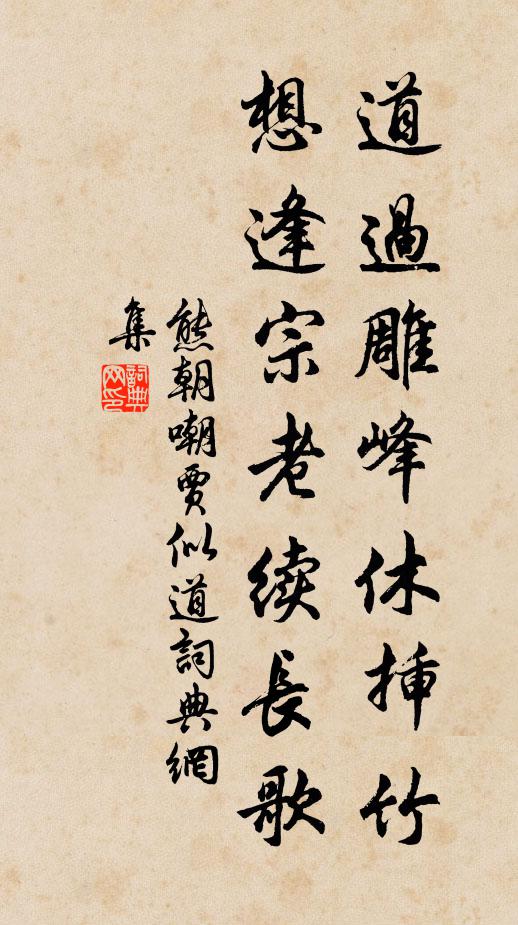 道過雕峰休挿竹
想逢宗老续長歌
熊朝嘲賈似道詞典網
集
詞典
网印